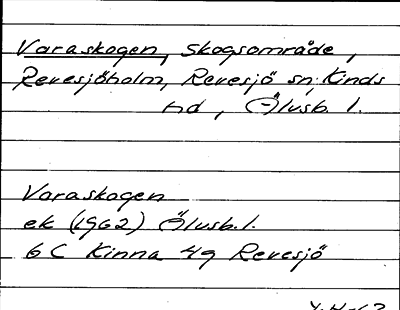 Varaskogen, skogsområde,
Revesjöholm, Revesjö sn, Kinds
hd, Älvsb. l.
Varaskogen
ek (1962) Älvsb. l.
6 C Kinna 4g Revesjö